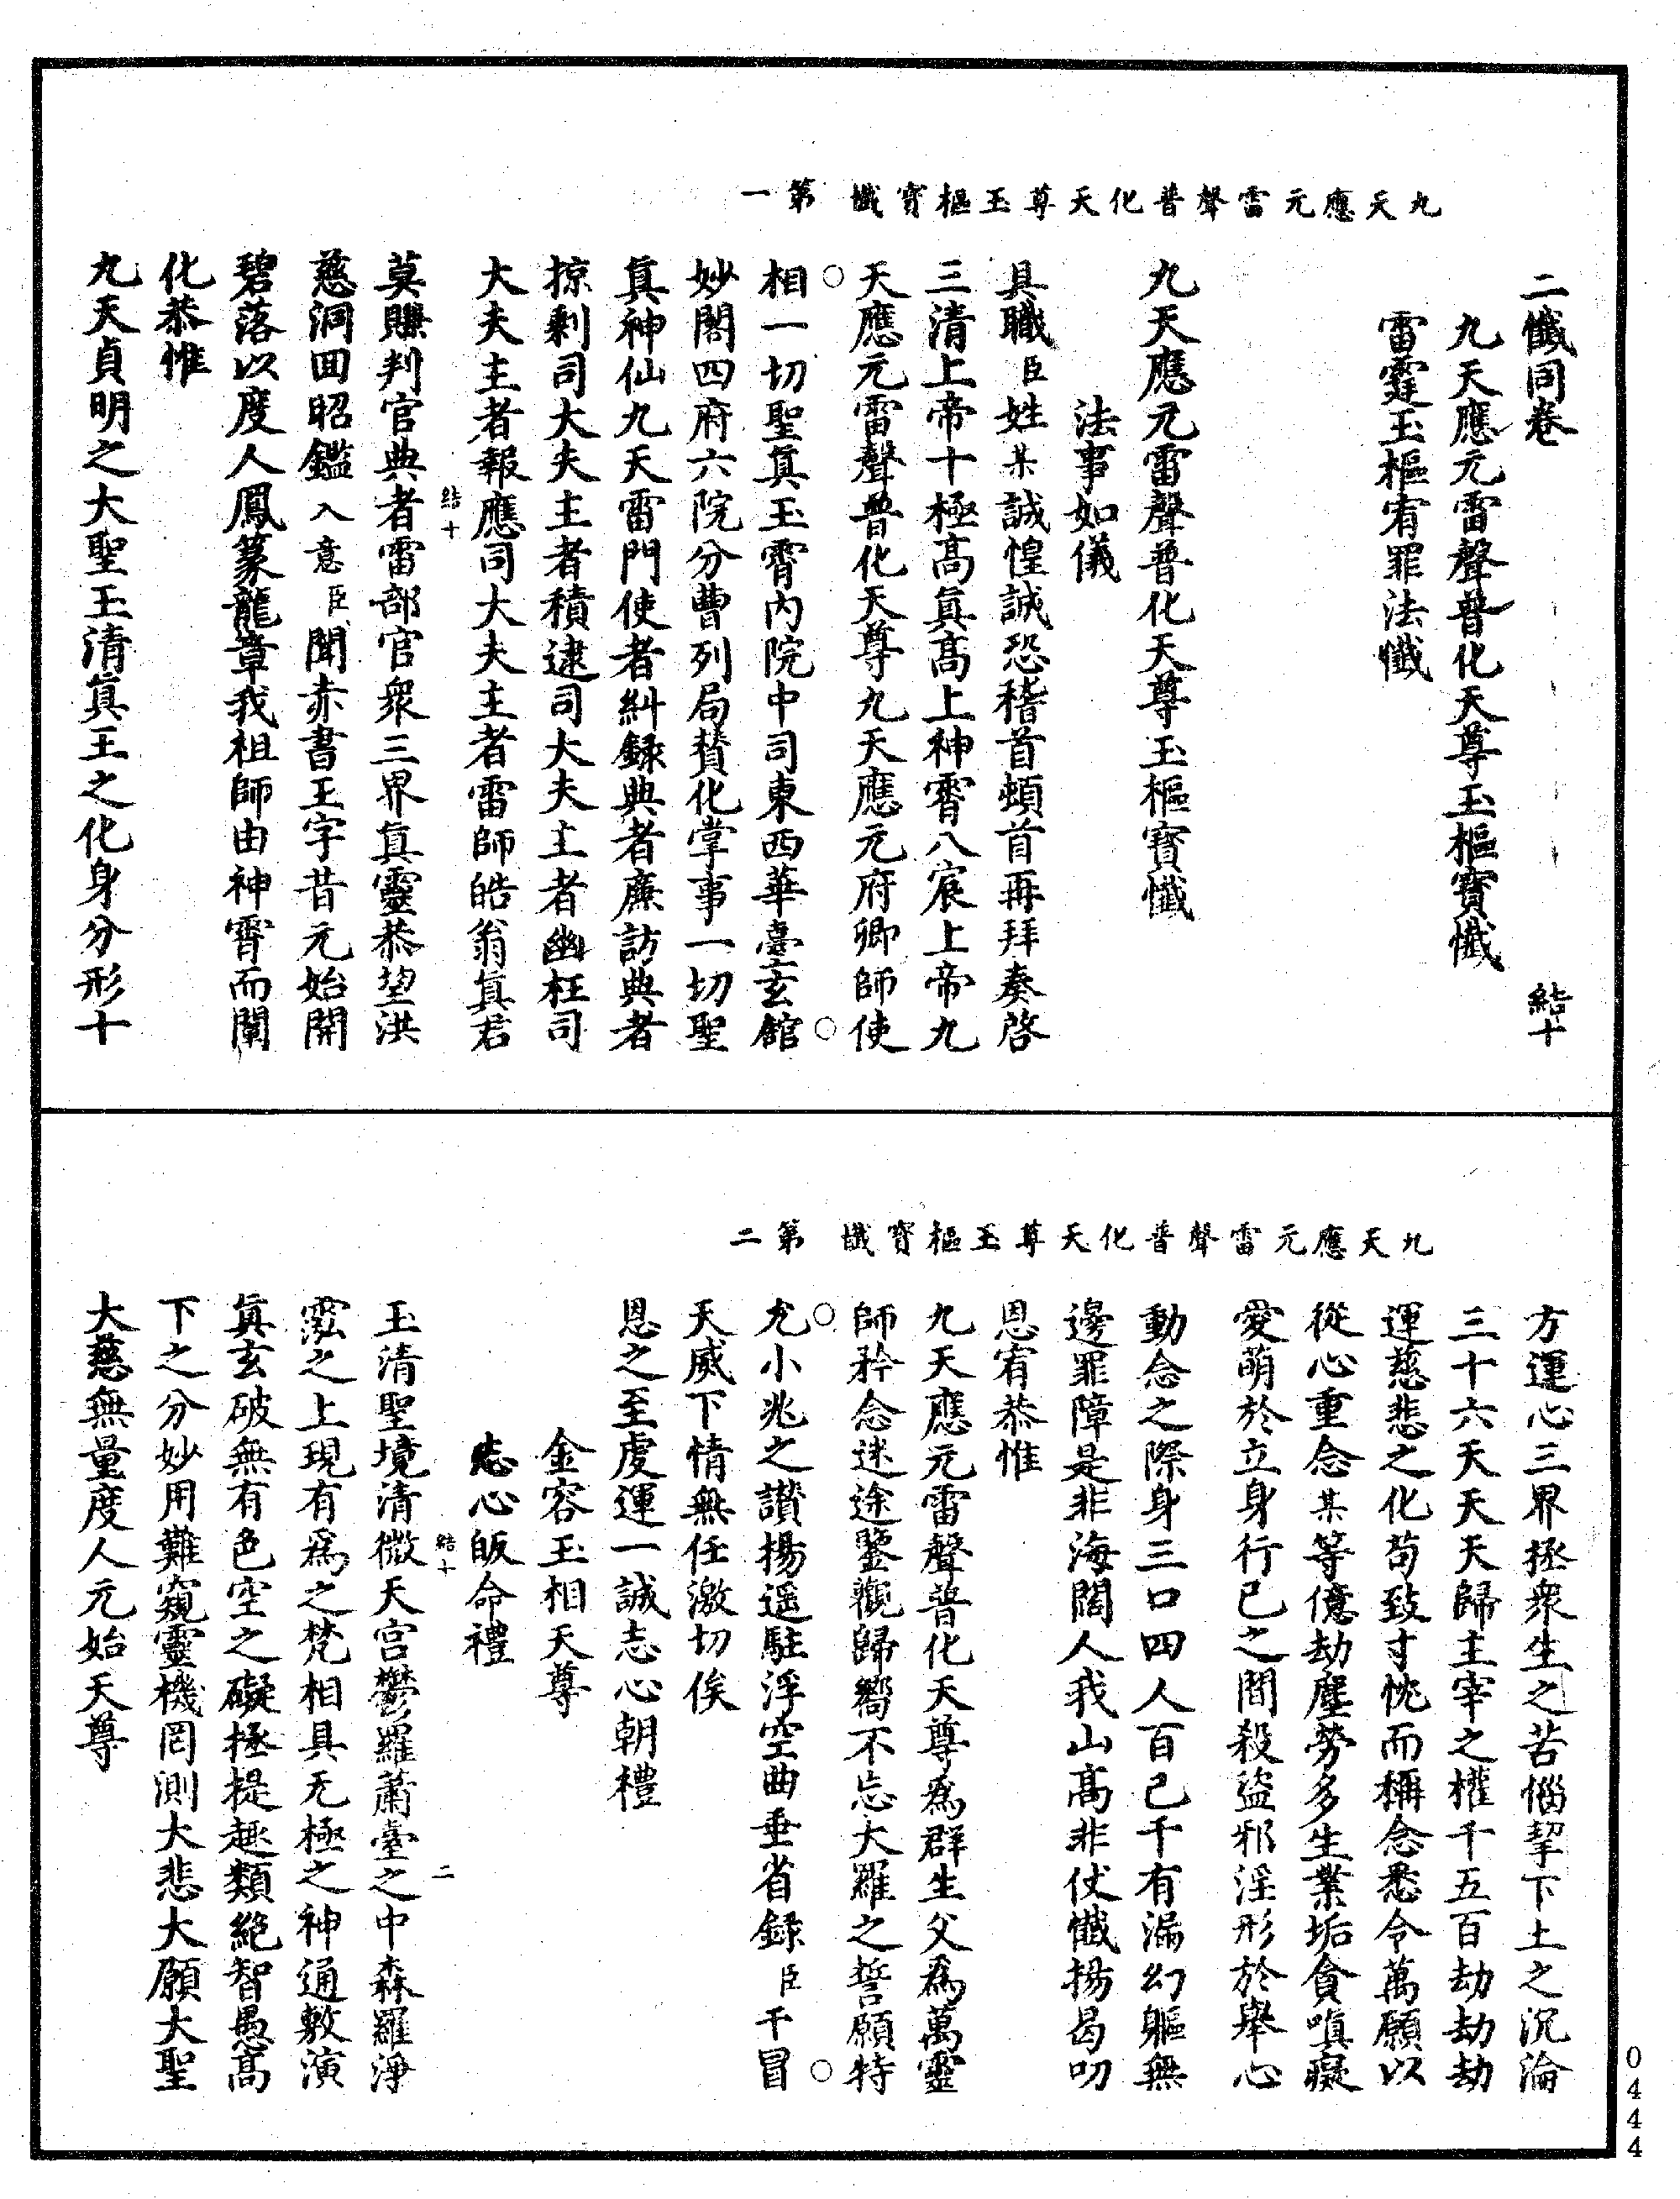 九天應元雷聲普化天尊玉樞寶懺　第一
二懺同卷　結十
九天應元雷聲普化天尊玉樞寶懺
雷霆玉樞宥罪法懺
九天應元雷聲普化天尊玉樞寶懺
法事如儀
具職臣姓某誠惶誠恐稽首頓首再拜奏啓
三清上帝十極高眞高上神霄八宸上帝九
天應元雷聲普化天尊九天應元府卿師使
相一切聖眞玉霄内院中司東西華臺玄館
妙閣四府六院分曹列局賛化掌事一切聖
眞神仙九天雷門使者糾録典者廉訪典者
掠剩司大夫主者積逮司大夫主者幽枉司
大夫主者報應司大夫主者雷師皓翁眞君
結十
莫賺判官典者雷部官衆三界眞靈恭望洪
慈洞回昭鑑入意臣聞赤書玉字昔元始開
碧落以度人鳳篆龍章我祖師由神霄而闡
化恭惟
九天貞明之大聖玉清眞王之化身分形十
九天應元雷聲普化天尊玉樞寶懺　第二
方運心三界拯衆生之苦惱挈下土之沉淪
三十六天天天歸主宰之權千五百劫劫劫
運慈悲之化苟致寸忱而稱念悉令萬願以
從心重念某等億劫塵勞多生業垢貪嗔癡
愛萌於立身行已之間殺盜邪淫形於舉心
動念之際身三口四人百己千有漏幻軀無
邊罪障是非海闊人我山高非仗懺揚曷叨
恩宥恭惟
九天應元雷聲普化天尊爲群生父爲萬靈
師矜念迷途鑒觀歸嚮不忘大羅之誓願特
允小兆之讃揚遥駐浮空曲垂省録臣干冒
天威下情無任激切俟
恩之至虔運一誠志心朝禮
金容玉相天尊
志心皈命禮
結十
二
玉清聖境清微天宫鬱羅蕭臺之中森羅淨
泓之上現有爲之梵相具无極之神通敷演
眞玄破無有色空之礙拯提趣類絶智愚高
下之分妙用難窺靈機罔測大悲大願大聖
大慈無量度人元始天尊
0444